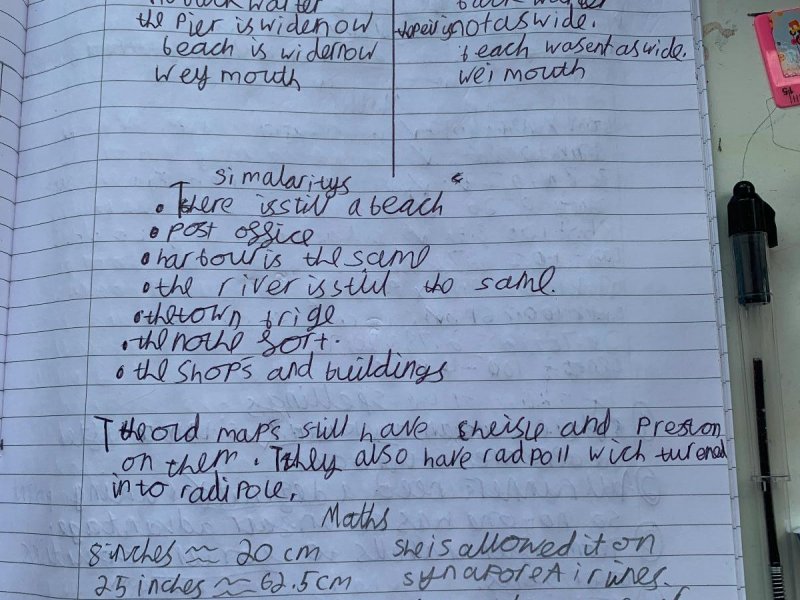 the Pier is wide now
beach is wider now
Wey mouth
not as wide.
beach wasent as wide.
Wei mouth
Simalaritys
• There is still a beach
• Post office
• harbour is the same
• the river is still the same.
• the town brige
• the nothe fort.
• the shops and buildings
The old maps still have and Preston
on them. They also have radpoll wich turened
into radipole.
Maths
8 inches ≈ 20 cm
25 inches ≈ 62.5 cm
she is allowed it on